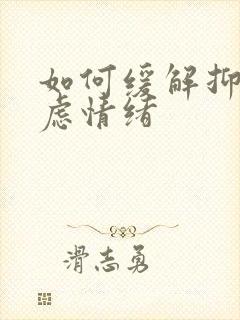 如何缓解抑
虑情绪
滑志勇